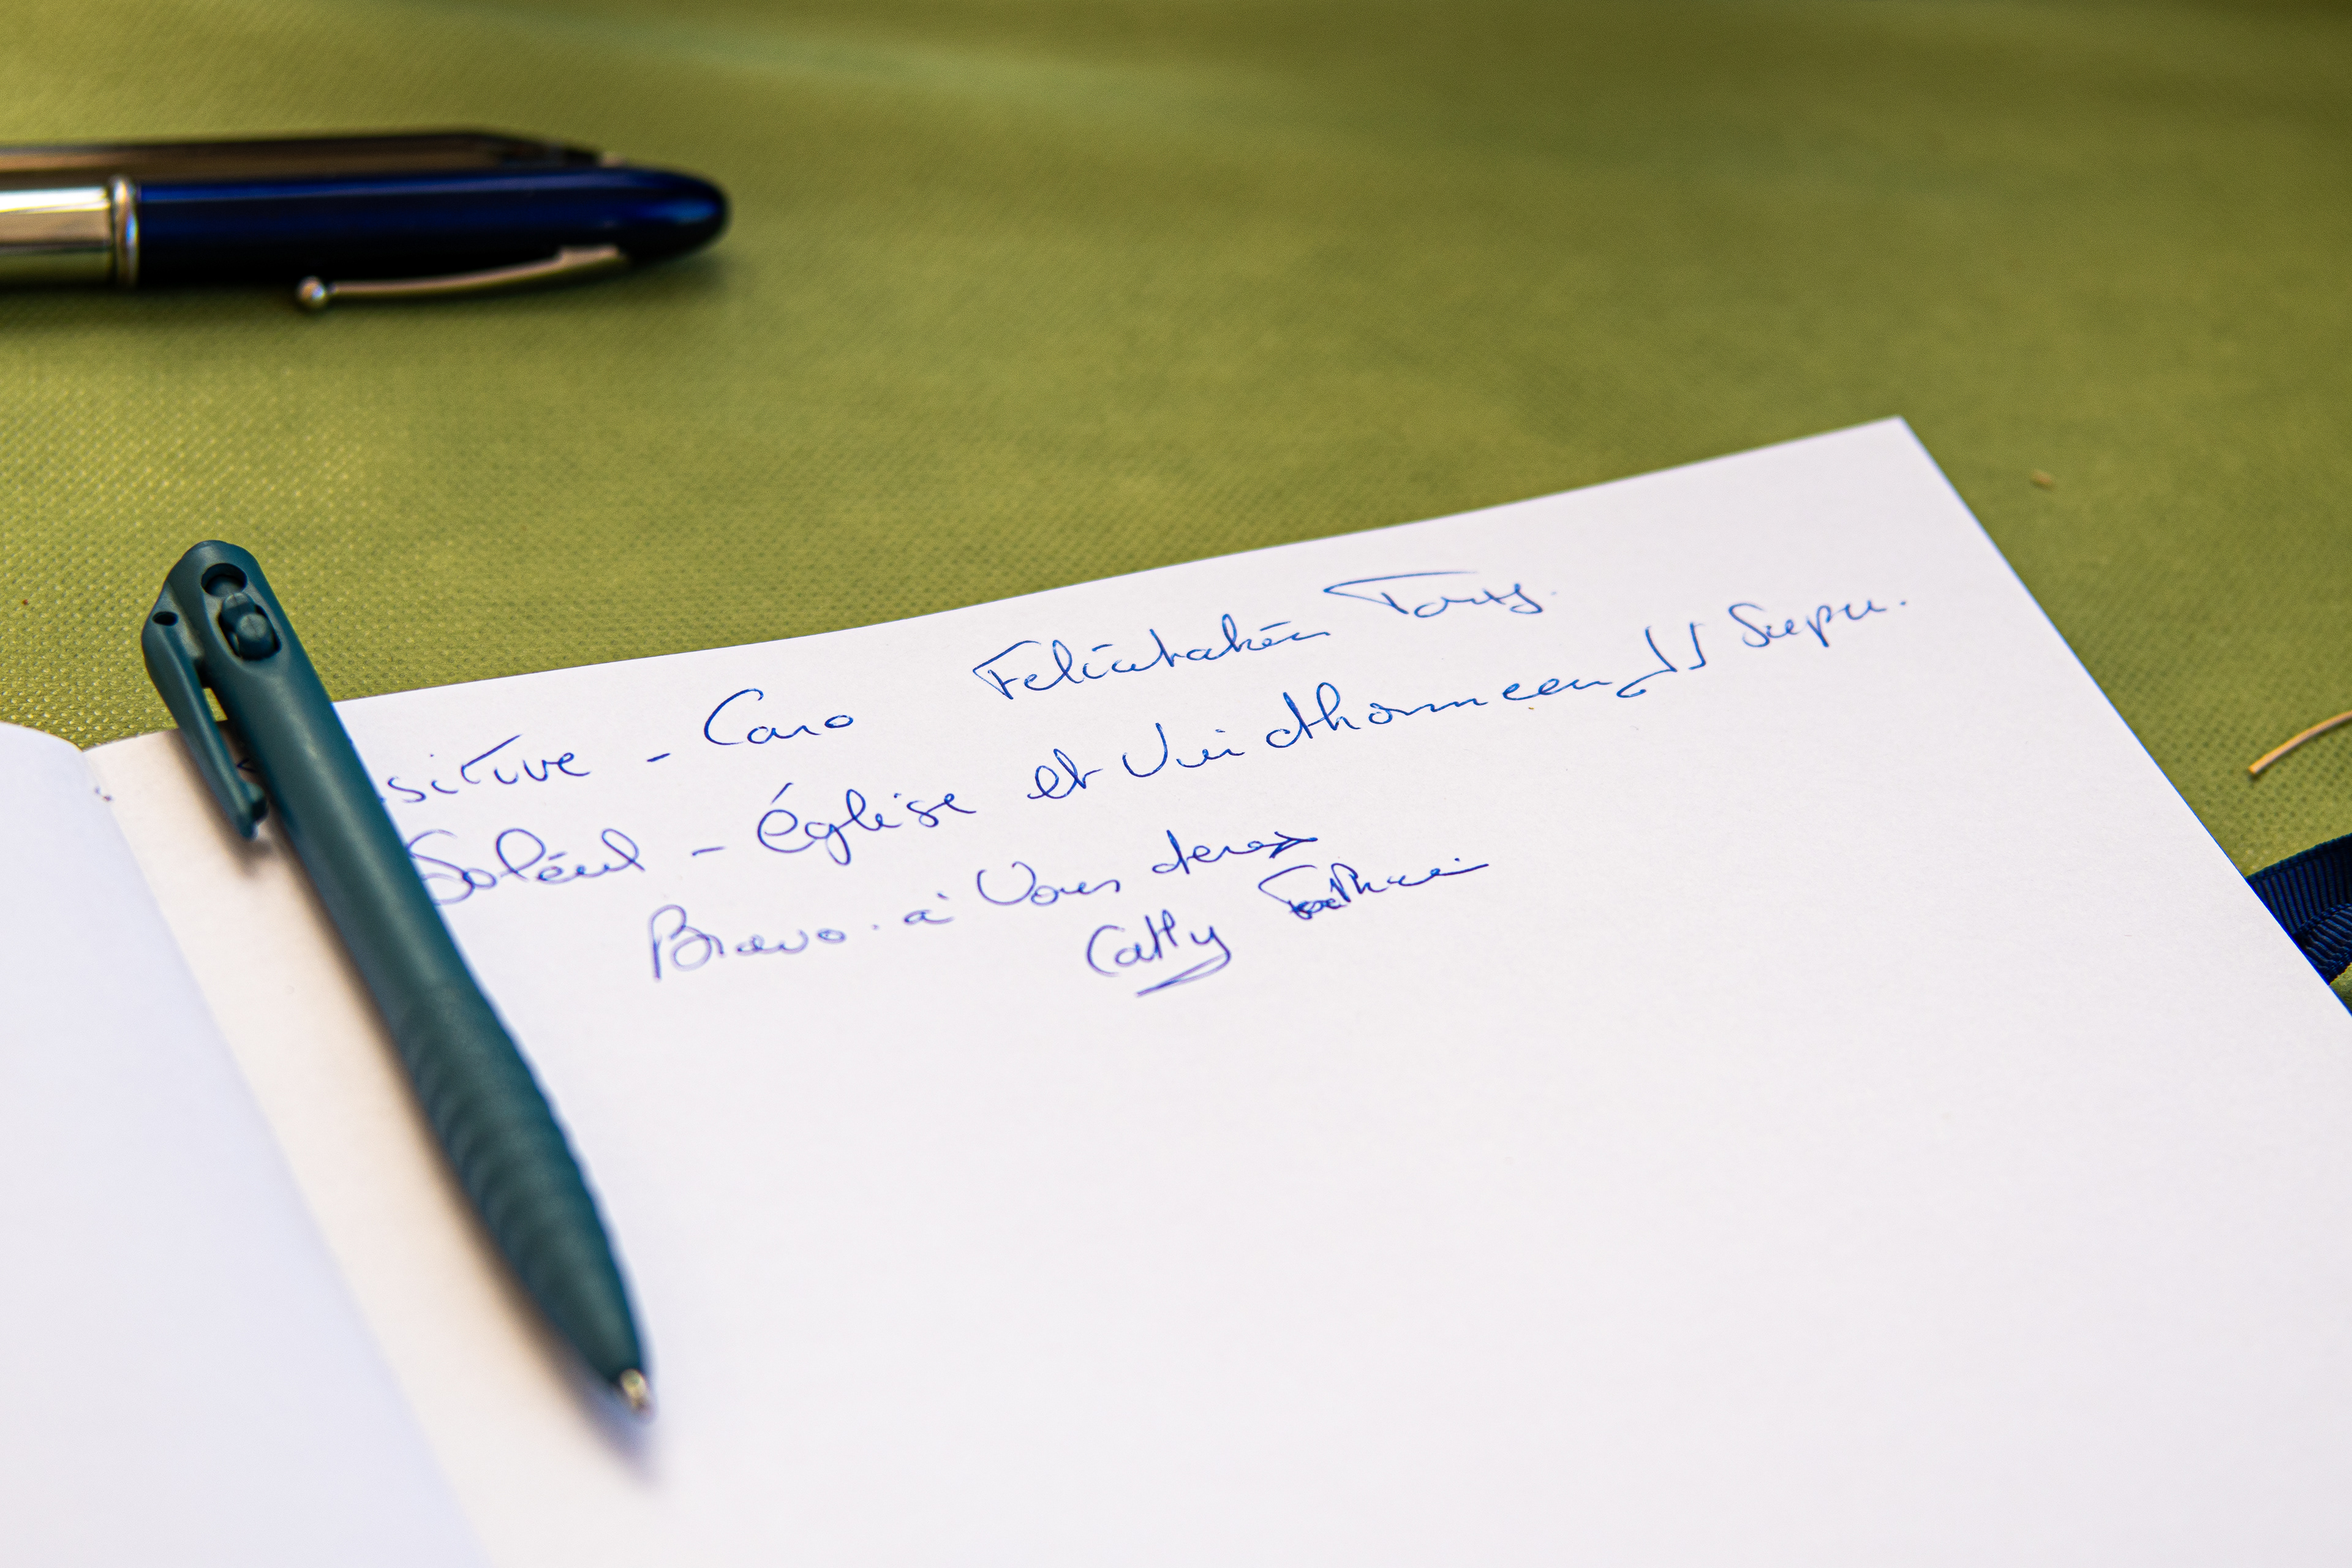 sitive - Caro Felicitation Tony.
Soleil - Église et Vin d'honneur Super.
Bravo. à Vous deux
Cathy